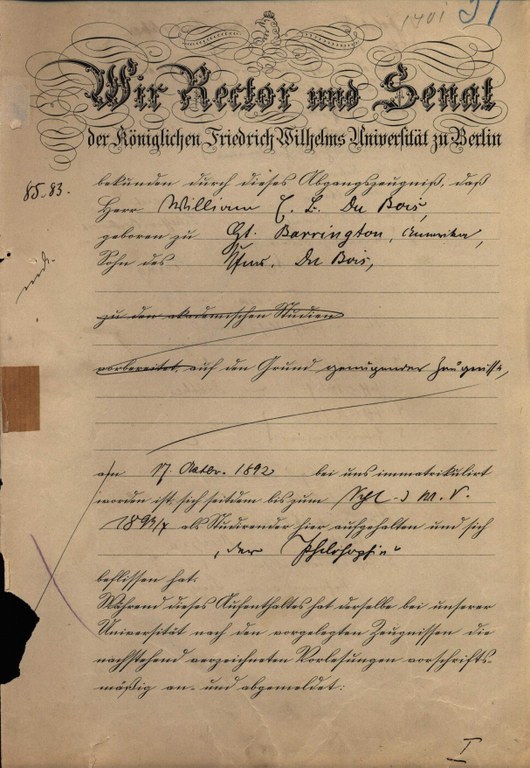 1701 51
Wir Rector und Senat
der Königlichen Friedrich Wilhelms Universität zu Berlin
85.83.
bekunden durch dieses Abgangszeugniß, daß
Herr William E. B. Du Bois,
geboren zu Gt. Barrington, Amerika,
Sohn des Du Bois,
zu den akademischen Studien
vorbereitet, auf den Grund genügender Zeugnisse,
am 17. Octbr. 1892 bei uns immatrikulirt
worden ist, sich seitdem bis zum
als Studirender hier aufgehalten und sich
„der Philosophie“
beflissen hat.
Während dieses Aufenthaltes hat derselbe bei unserer
Universität nach den vorgelegten Zeugnissen die
nachstehend verzeichneten Vorlesungen vorschrifts-
mäßig an- und abgemeldet:
I